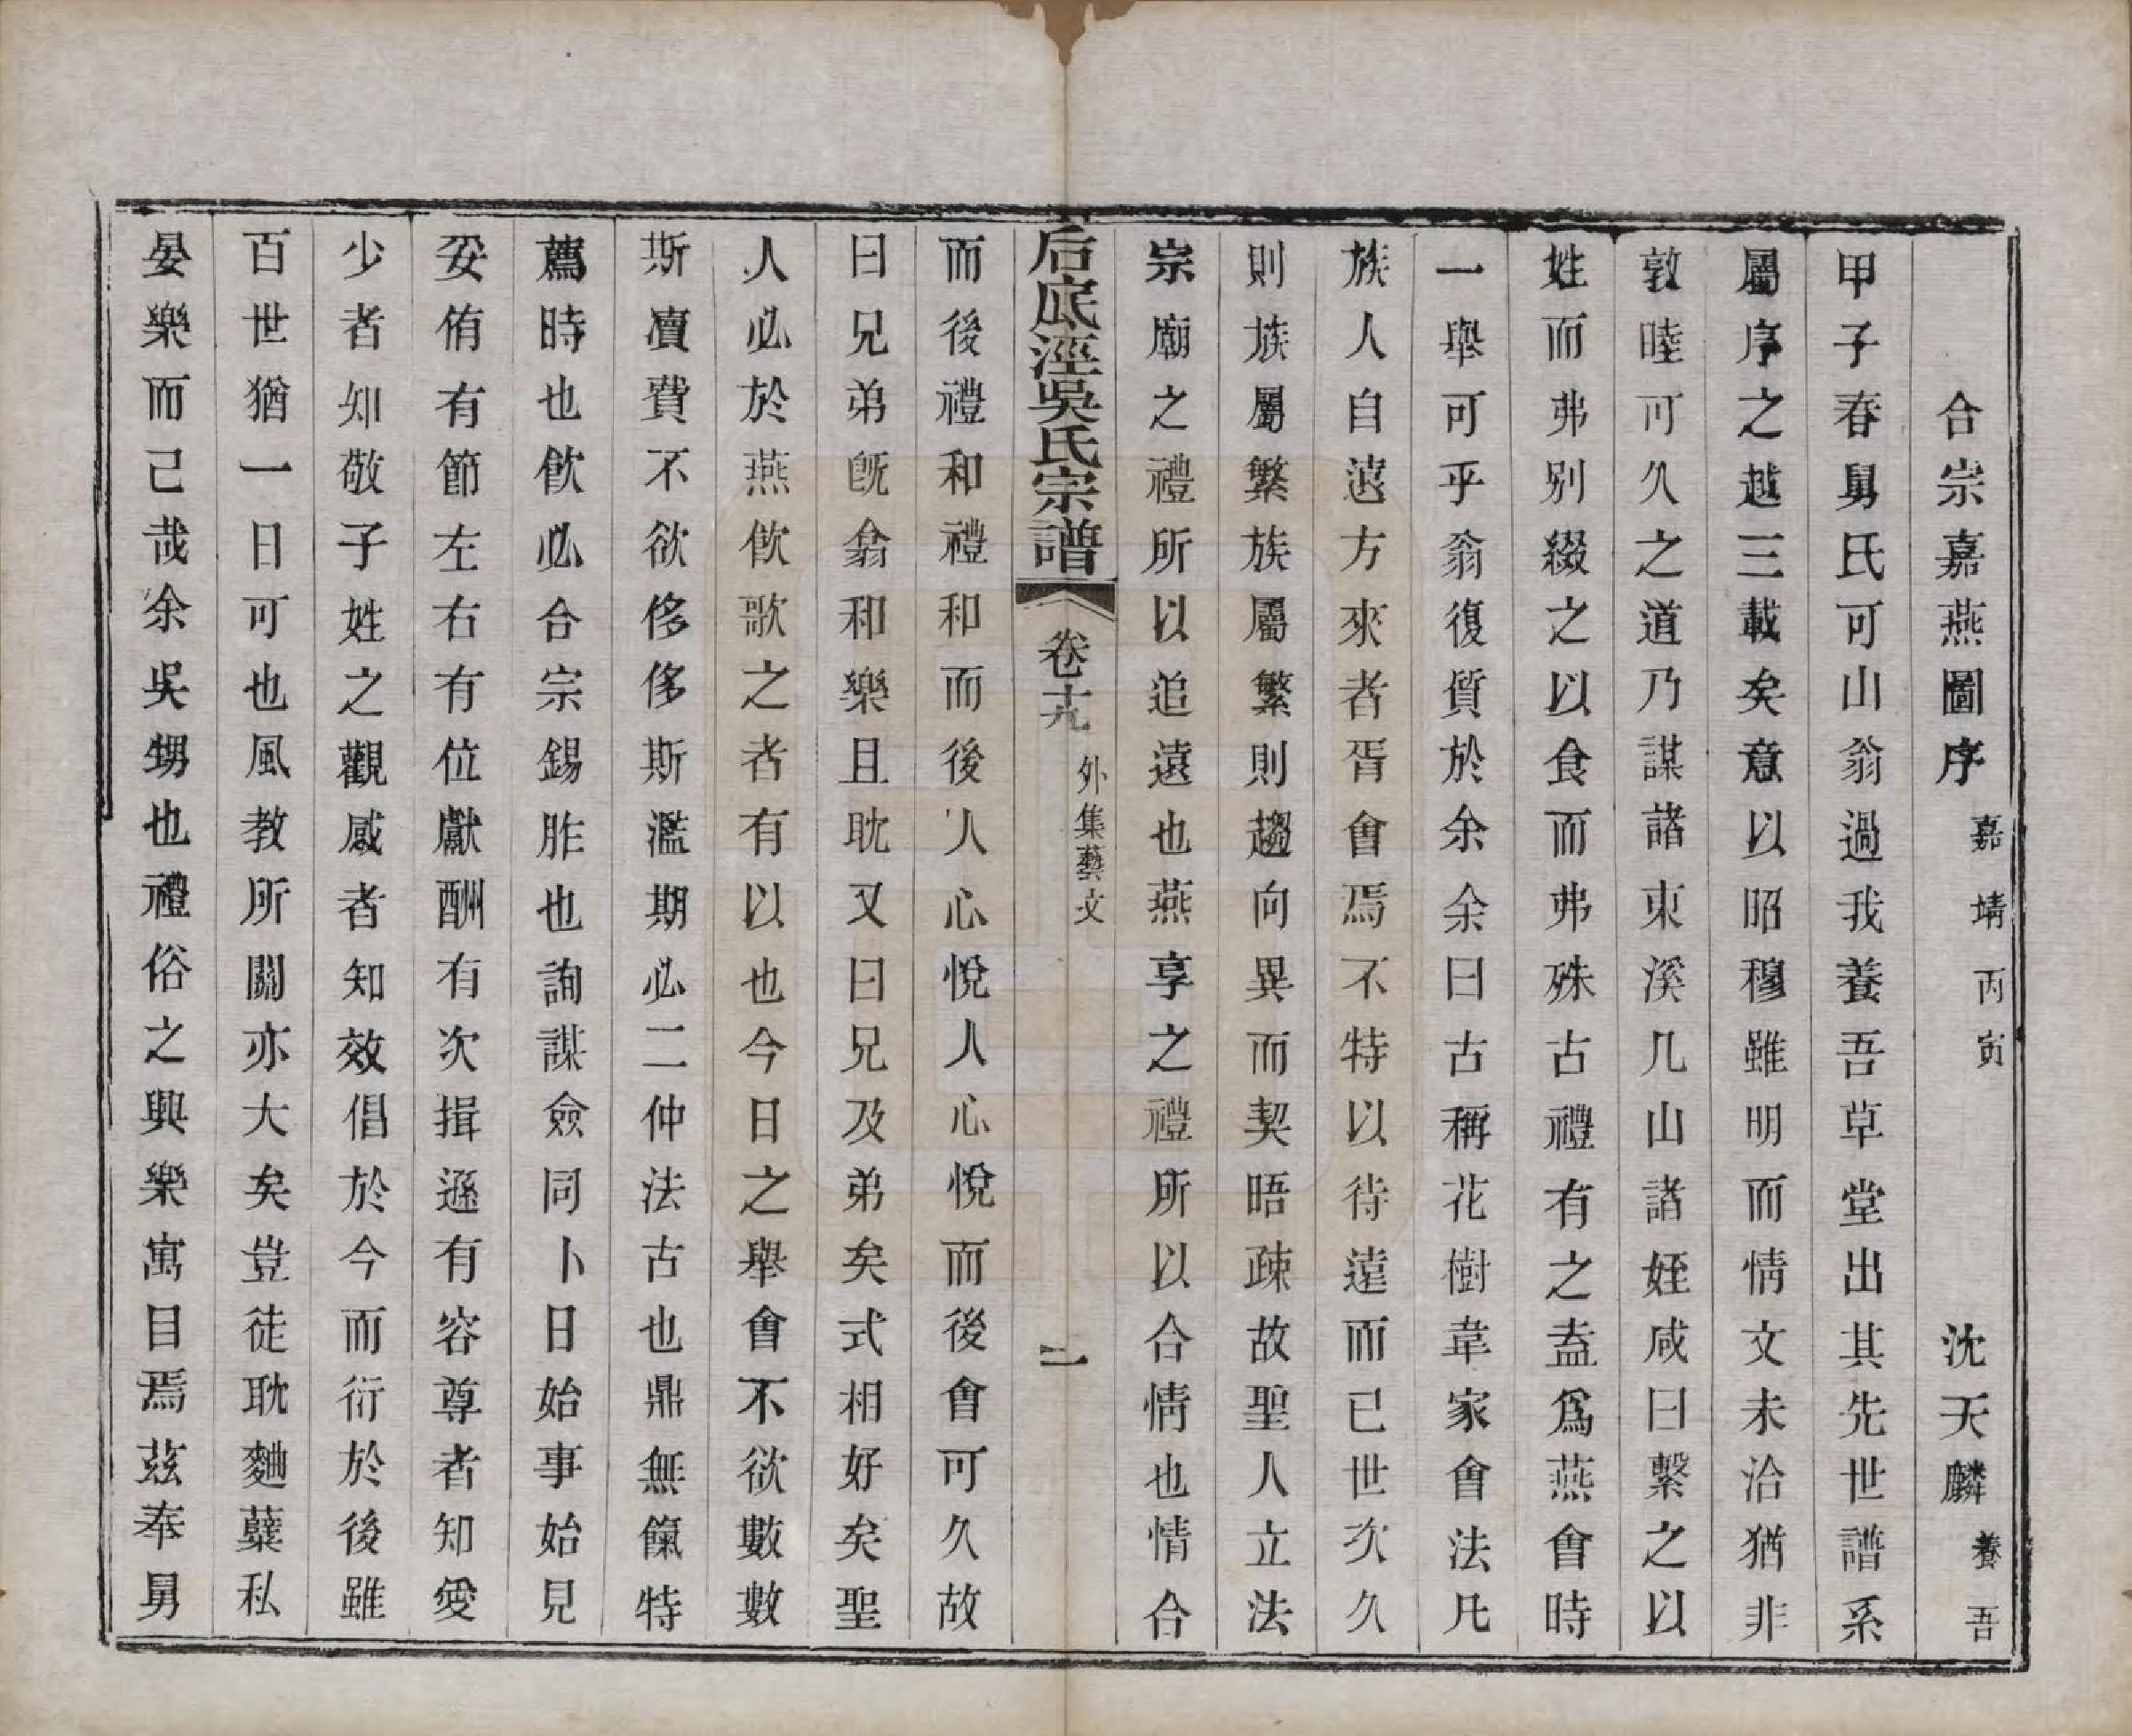 合宗嘉燕圖序嘉靖丙寅　沈天麟養吾
甲子春舅氏可山翁過我養吾草堂出其先世譜系
屬序之越三載矣意以昭穆雖明而情文未洽猶非
敦睦可久之道乃謀諸東溪几山諸姪咸曰繫之以
姓而弗别綴之以食而弗殊古禮有之盍爲燕會時
一舉可乎翁復質於余余曰古稱花樹韋家會法凡
族人自遠方來者胥會焉不特以待遠而已世次久
則族屬繁族屬繁則趨向異而契晤疎故聖人立法
宗廟之禮所以追遠也燕享之禮所以合情也情合
后底涇吳氏宗譜　卷十九　外集藝文　二
而後禮和禮和而後人心悅人心悅而後會可久故
曰兄弟旣翕和樂且耽又曰兄及弟矣式相好矣聖
人必於燕飮歌之者有以也今日之舉會不欲數數
斯凟費不欲侈侈斯濫期必二仲法古也鼎無餼特
薦時也飮必合宗錫胙也詢謀僉同卜日始事始見
妥侑有節左右有位獻酬有次揖遜有容尊者知愛
少者知敬子姓之觀感者知效倡於今而衍於後雖
百世猶一日可也風教所關亦大矣豈徒耽麯糵私
晏樂而己哉余吳甥也禮俗之興樂寓目焉茲奉舅